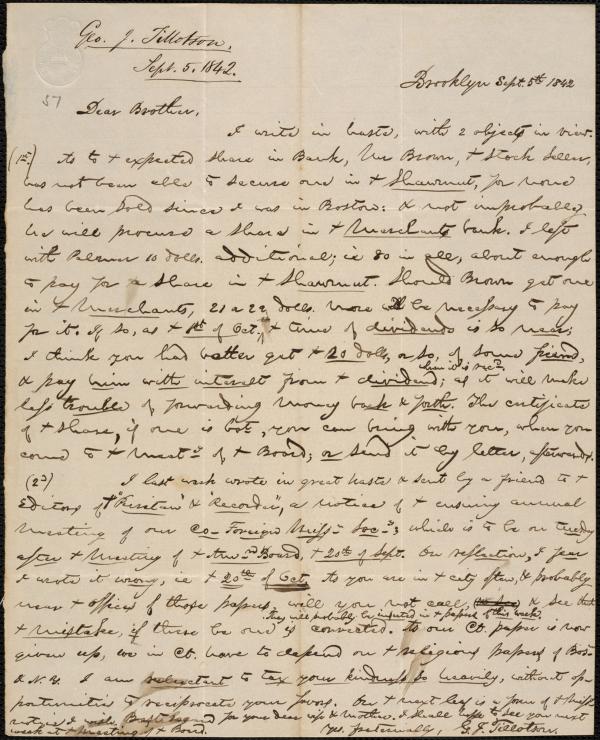 Geo. J. Tillotson,
Sept. 5, 1842.
57
Brooklyn Sept. 5th 1842
Dear Brother,
I write in haste, with 2 objects in view.
(1st) As to + expected share in Bank, Mr Brown, + Stock Seller,
has not been able to secure one in + Shawmut, for none
has been sold since I was in Boston: & not improbably
he will procure a share in + Merchants bank. I left
with Palmer 10 dolls. additional; ie 80 in all, about enough
to pay for a share in + Shawmut. Should Brown get one
in + Merchants, 21 a 22 dolls. more will be necessary to pay
for it. If so, as + 1st of Oct, + time of dividends is so near;
I think you had better get + 20 dolls, or so, of some friend,
& pay him with interest from + dividend; as it will make
when it is rec'd,
less trouble of forwarding money back & forth. The certificate
of + share, if one is bot, you can bring with you, when you
come to + meetg of + Board; or send it by letter, afterwards.
(2d) I last week wrote in great haste & sent by a friend to +
Editors of + "Puritan" & "Recorder", a notice of + ensuing annual
meeting of our Co- Foreign Miss- Soc-y; which is to be on tuesday
after + Meeting of + Am- Board, + 20th of Sept. On reflection, I fear
I wrote it wrong, ie + 20th of Oct. As you are in + city often, & probably
near + offices of those papers, will you not call, & see that
They will probably be inserted in + papers of this week.
+ mistake, if there be one is corrected. As our Ct. paper is now
given up, we in Ct. have to depend on + religious papers of Bos-
& N.Y. I am reluctant to tax your kindness so heavily, without op-
portunities to reciprocate your favors. On + next leaf is a form of +
notice I wish. Best regard for your dear wife & mother. I shall hope to see you next
week at + meeting of + Board. Yrs. fraternally, G. J. Tillotson.